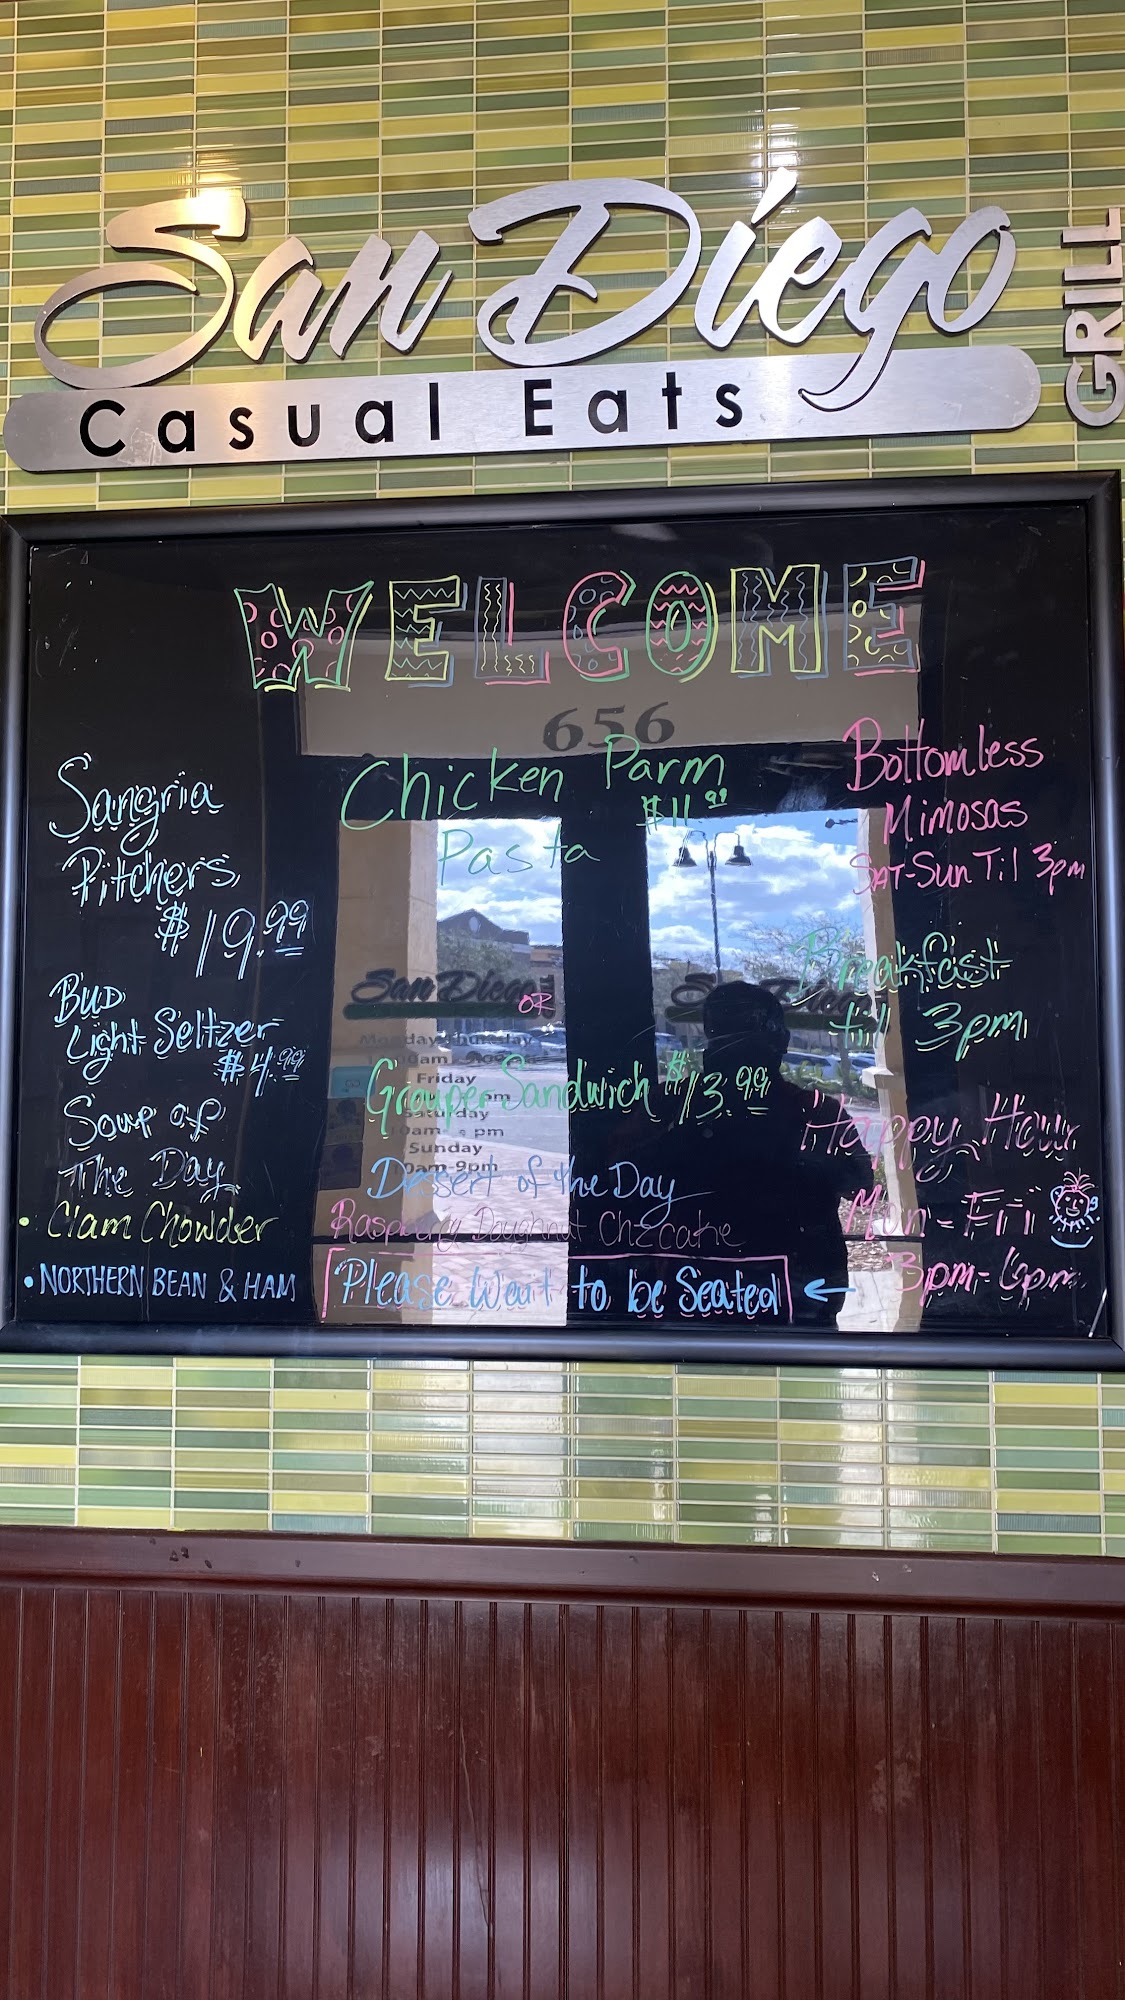 San Diego
GRILL
Casual Eats
WELCOME
656
Sangria
Pitchers
$19.99
Bud
Light Seltzer
$4.99
Soup of
The Day
• Clam Chowder
• NORTHERN BEAN & HAM
Chicken Parm
$11.99
Pasta
San Diego
OR
Monday-Thursday
Friday
Grouper Sandwich $13.99
Saturday
Sunday
10am-9pm
Dessert of the Day
Raspberry Doughnut Chzcake
Please Wait to be Seated
Bottomless
Mimosas
SAT-Sun Til 3pm
Breakfast
till 3pm
Happy Hour
Mon-Fri
3pm-6pm